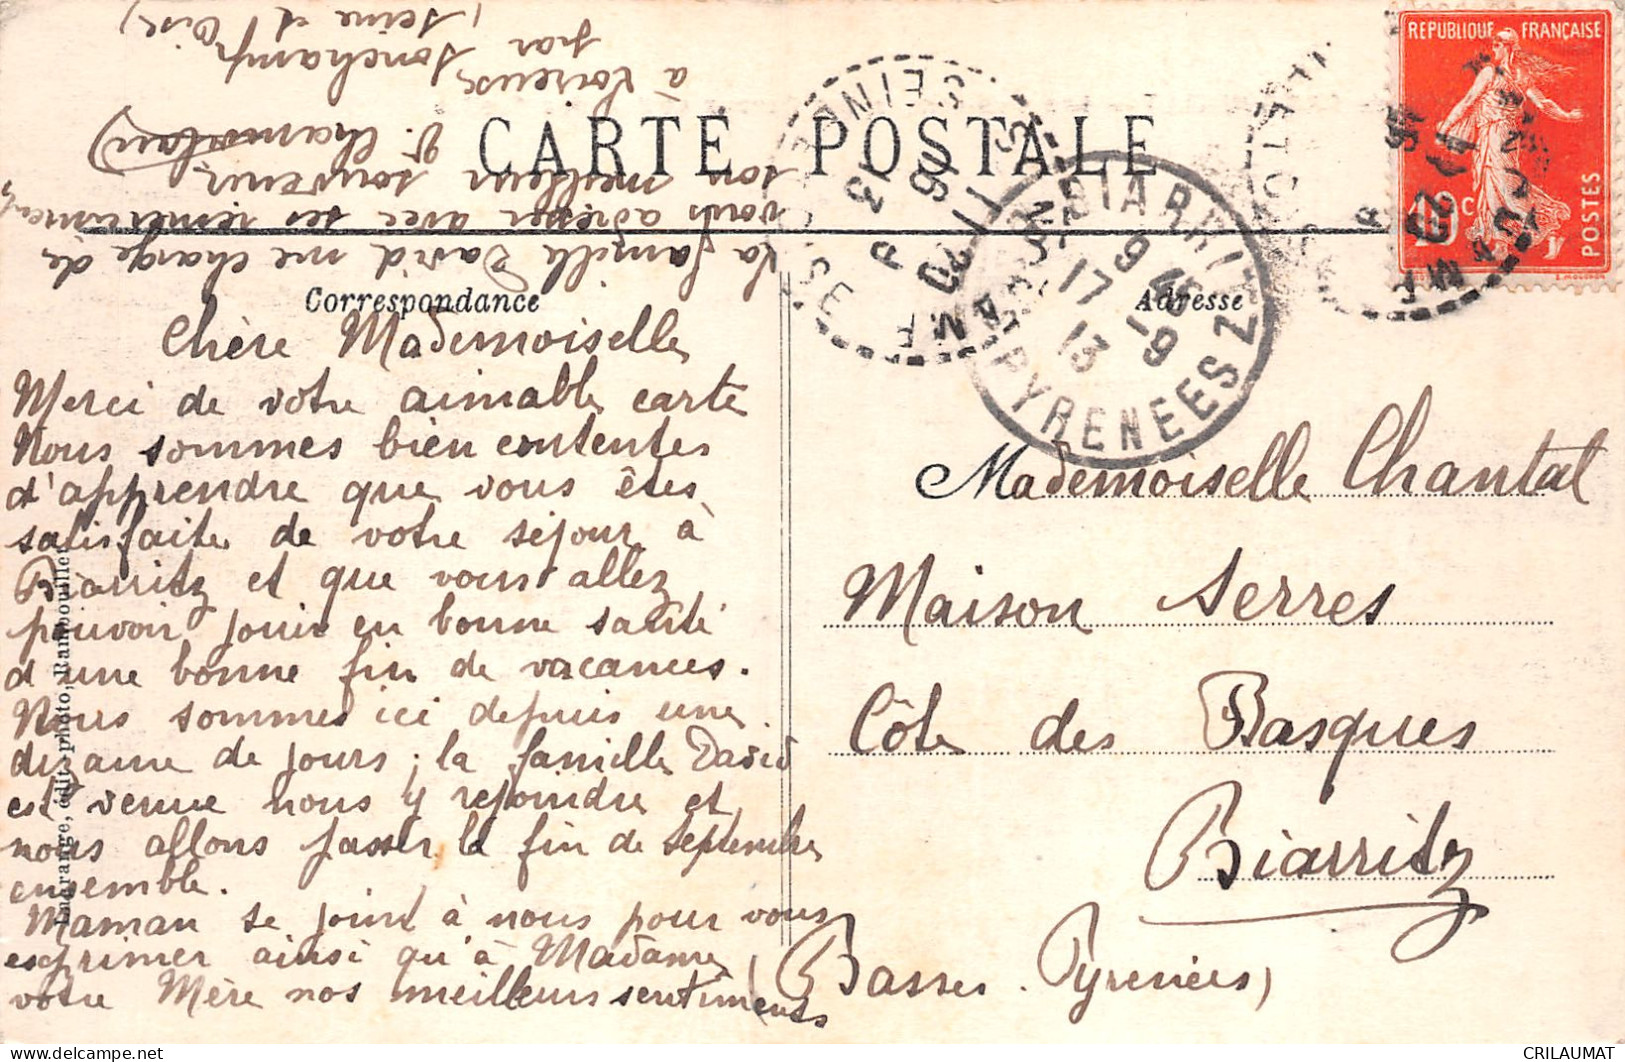 CARTE POSTALE
Correspondance
Adresse
Chère Mademoiselle
Merci de votre aimable carte
Nous sommes bien contentes
d'apprendre que vous êtes
satisfaite de votre séjour à
Biarritz et que vous allez
pouvoir jouir en bonne santé
d'une bonne fin de vacances.
Nous sommes ici depuis une
dizaine de jours ; la famille David
est venue nous y rejoindre et
nous allons passer la fin de septembre
ensemble.
Maman se joint à nous pour vous
exprimer ainsi qu'à Madame
votre Mère nos meilleurs sentiments
La famille David me charge de
vous adresser avec ses remerciements
son meilleur souvenir
à
par Sonchamp
(Seine et Oise)
Mademoiselle Chantal
Maison Serres
Côte des Basques
Biarritz
(Basses-Pyrénées)
REPUBLIQUE FRANÇAISE
10c
POSTES
BIARRITZ
17 9
13 -9
PYRENEES
SEINE
OISE
Lagrange, édit.-photo, Rambouillet
CRILAUMAT